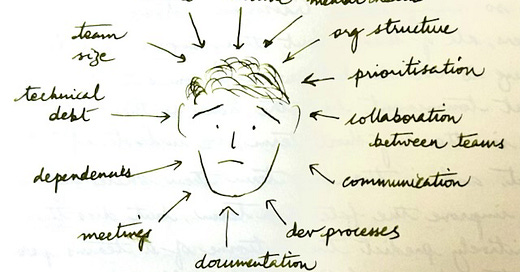 team
size
org structure
prioritisation
technical
debt
collaboration
between teams
communication
meetings
dev processes
documentation